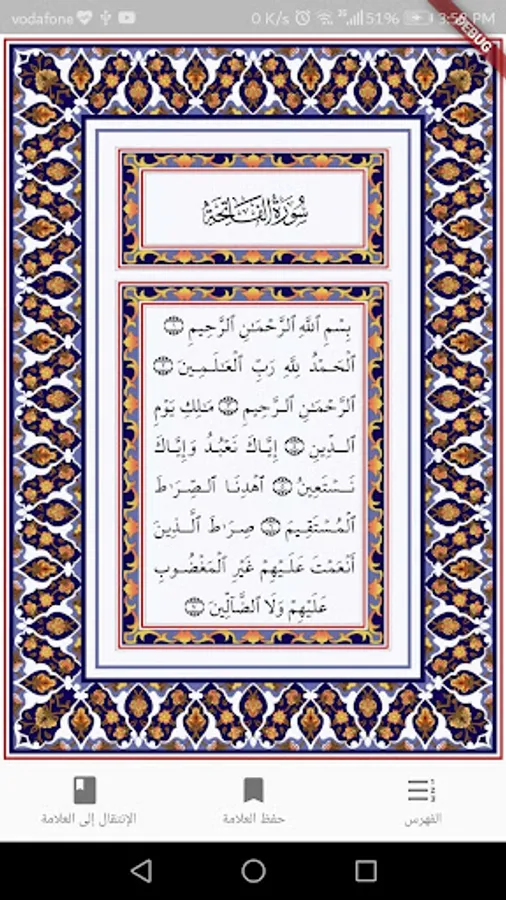 vodafone 0 K/s 3G 51% 3:58 PM
DEBUG
سُورَةُ الفَاتِحَةِ
بِسْمِ ٱللَّهِ ٱلرَّحْمَٰنِ ٱلرَّحِيمِ ١
ٱلْحَمْدُ لِلَّهِ رَبِّ ٱلْعَٰلَمِينَ ٢
ٱلرَّحْمَٰنِ ٱلرَّحِيمِ ٣ مَٰلِكِ يَوْمِ
ٱلدِّينِ ٤ إِيَّاكَ نَعْبُدُ وَإِيَّاكَ
نَسْتَعِينُ ٥ ٱهْدِنَا ٱلصِّرَٰطَ
ٱلْمُسْتَقِيمَ ٦ صِرَٰطَ ٱلَّذِينَ
أَنْعَمْتَ عَلَيْهِمْ غَيْرِ ٱلْمَغْضُوبِ
عَلَيْهِمْ وَلَا ٱلضَّآلِّينَ ٧
الفهرس
حفظ العلامة
الإنتقال إلى العلامة